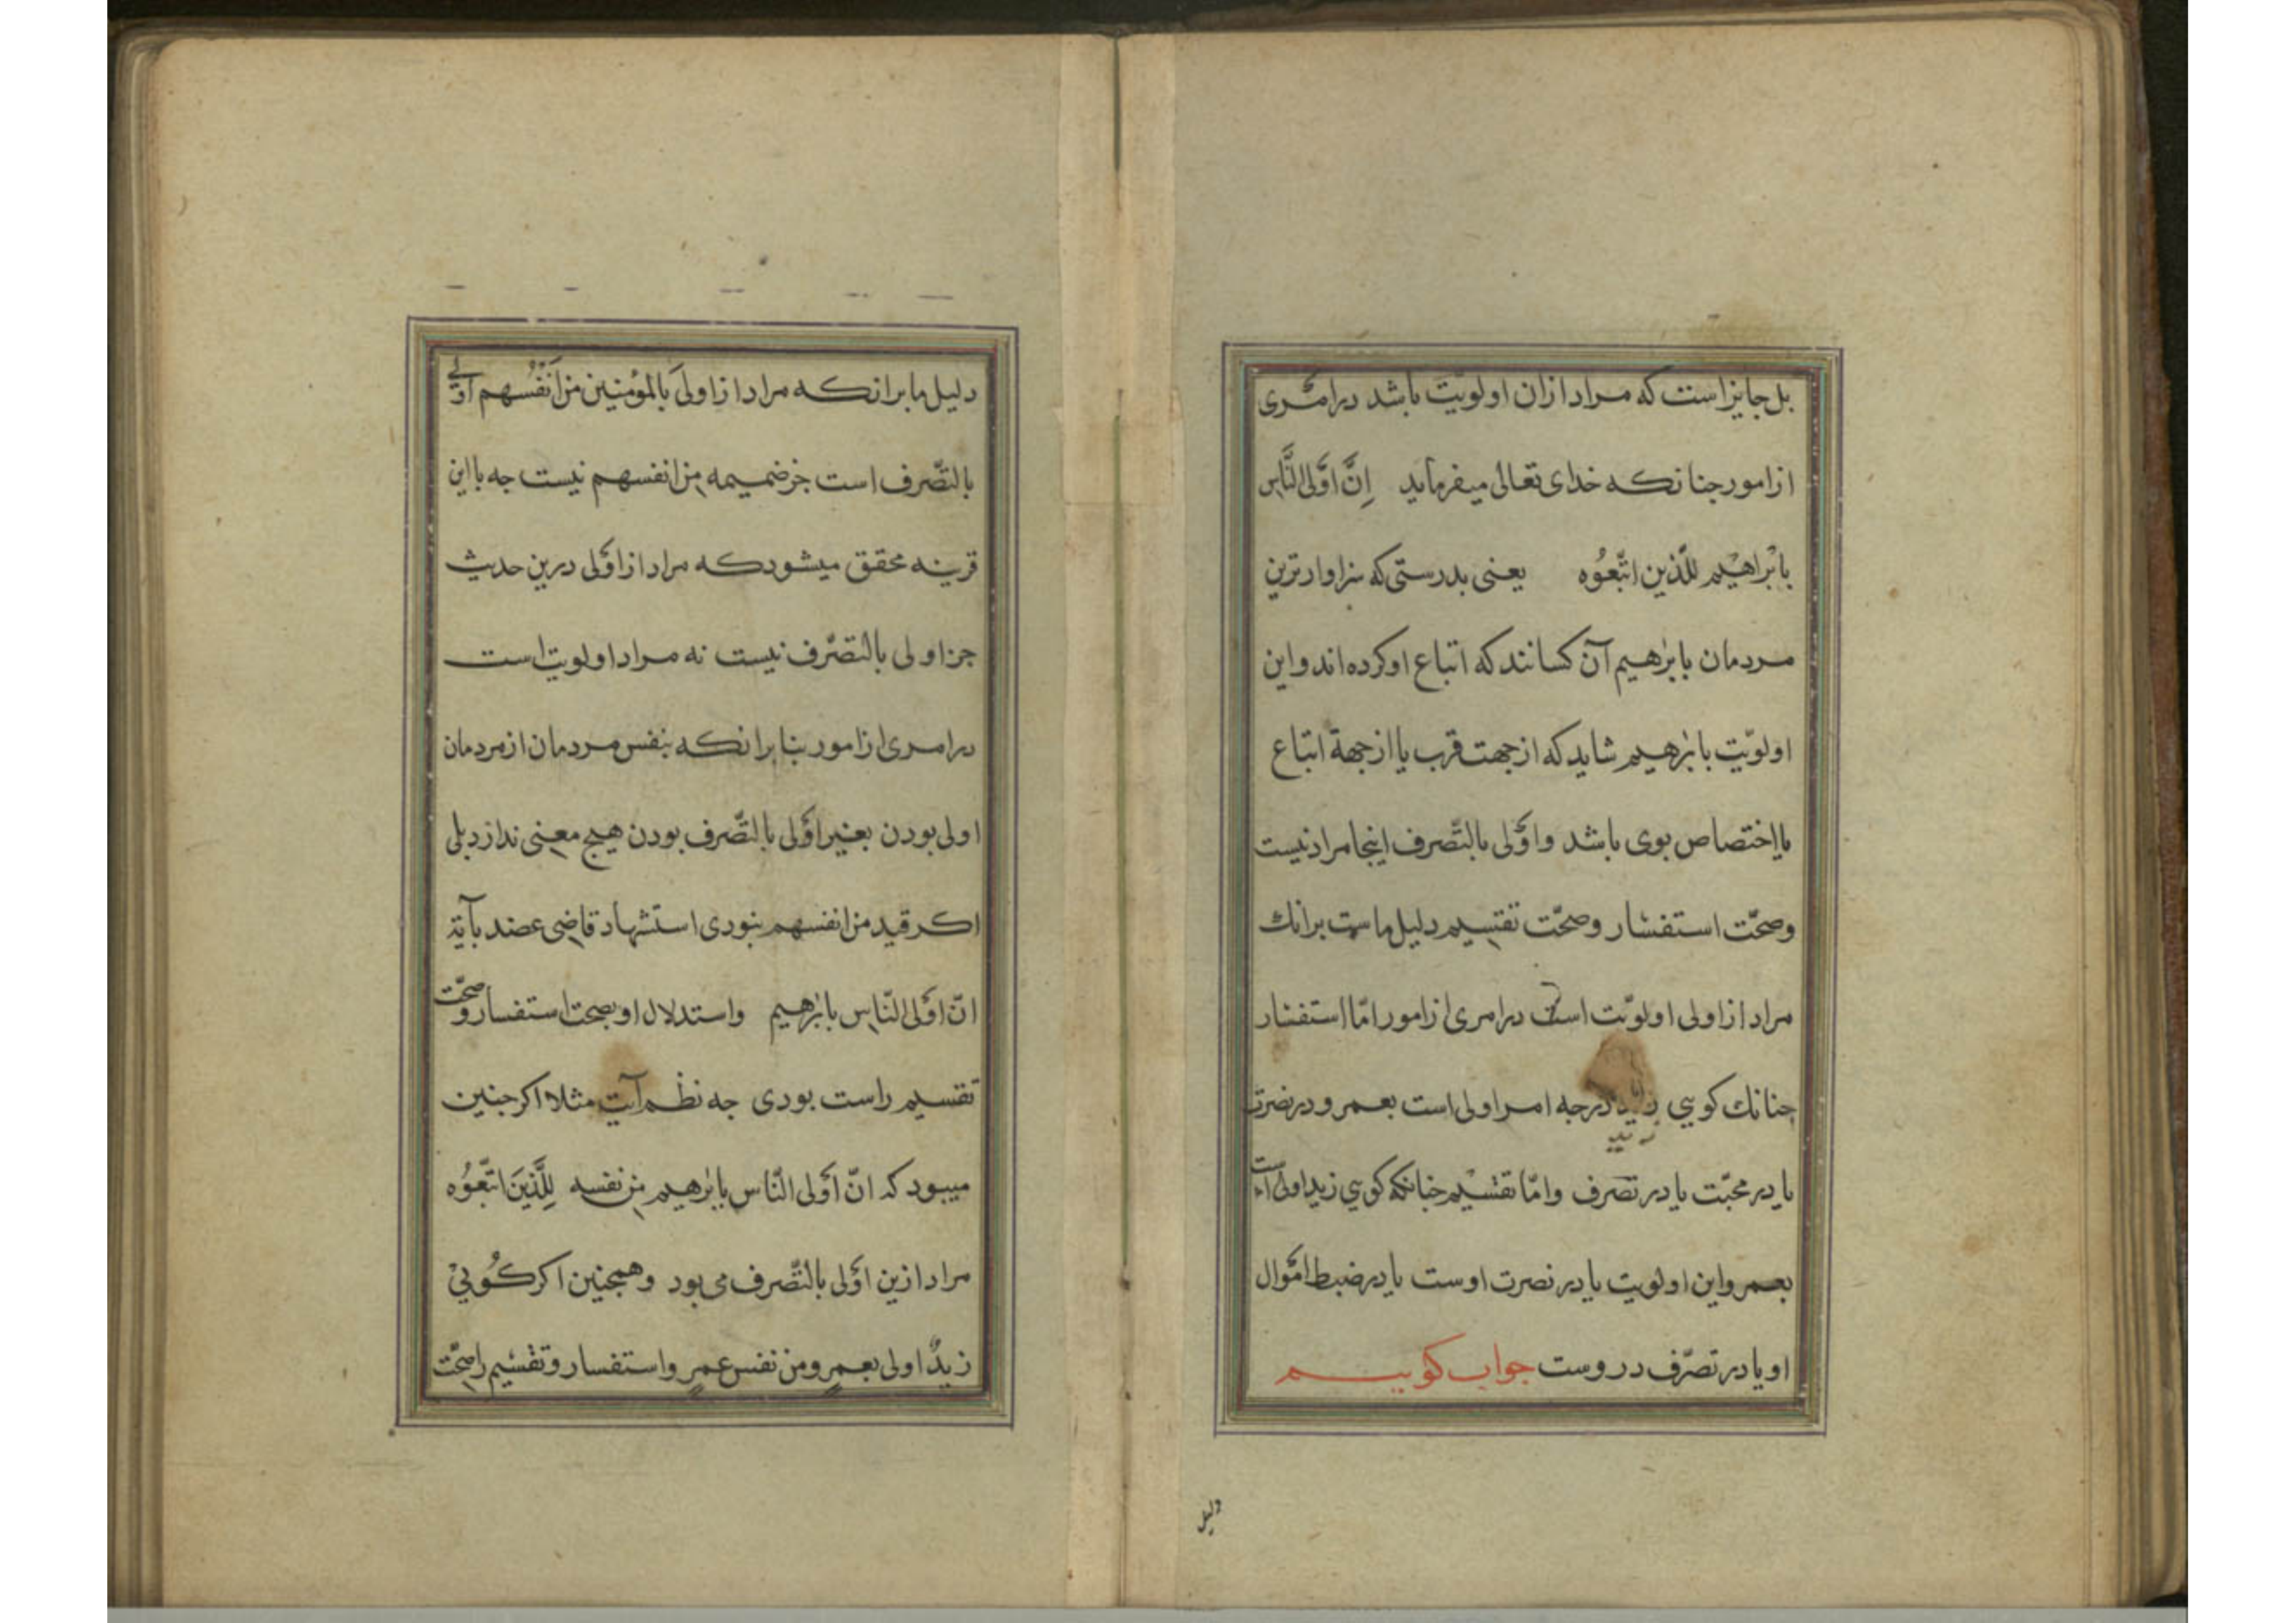 بل جایز است که مراد از ان اولویّت باشد در امری
از امور جنانکه خدای تعالی میفرماید اِنَّ اَوْلَی النَّاسِ
بِابْراهیْم للَّذین اتّبعُوه یعنی بدرستی که سزاوارترین
مردمان بابرهیم آن کسانند که اتباع او کرده اند و این
اولویّت بابرهیم شاید که از جهت قرب یا از جهة اتباع
یا اختصاص بوی باشد و اَوْلی بالتَّصرف اینجا مراد نیست
وصحّت استفسار وصحّت تقسیم دلیل ماست برانك
مراد از اولی اولویّت است در امری از امور امّا استفسار
جنانك کویی زید درجه امر اولی است بعمر و در نصرت
یا در محبّت یا در تصرف وامّا تقسیم جنانکه کویی زید اولی است
بعمر واین اولویت یا در نصرت اوست یا در ضبط اموال
او یا در تصرّف در وست جواب کوییم
دلیل
دلیل ما برانکه مراد از اولیَ بالمؤمنین من اَنْفُسهم اولی
بالتّصرف است جز ضمیمه من انفسهم نیست جه با این
قرینه محقق میشود که مراد از اَوْلی درین حدیث
جز اولی بالتصّرف نیست نه مراد اولویت است
در امری از امور بنا برانکه بنفس مردمان از مردمان
اولی بودن بغیر اَوْلی بالتّصرف بودن هیج معنی ندارد بلی
اکر قید من انفسهم نبودی استشهاد قاضی عضد بآیة
انّ اَوْلی النّاس بابرهیم واستدلال او بصحت استفسار وصحّت
تقسیم راست بودی جه نظم آیت مثلا اکر جنین
میبود که انّ اَوْلی النّاس بابرهیم من نفسه لِلَّذینَ اتَّبعُوه
مراد ازین اَوْلی بالتّصرف می بود وهمجنین اکر کُویيْ
زیدٌ اولی بعمرٍ ومن نفس عمرٍ واستفسار وتقسیم را صحّت